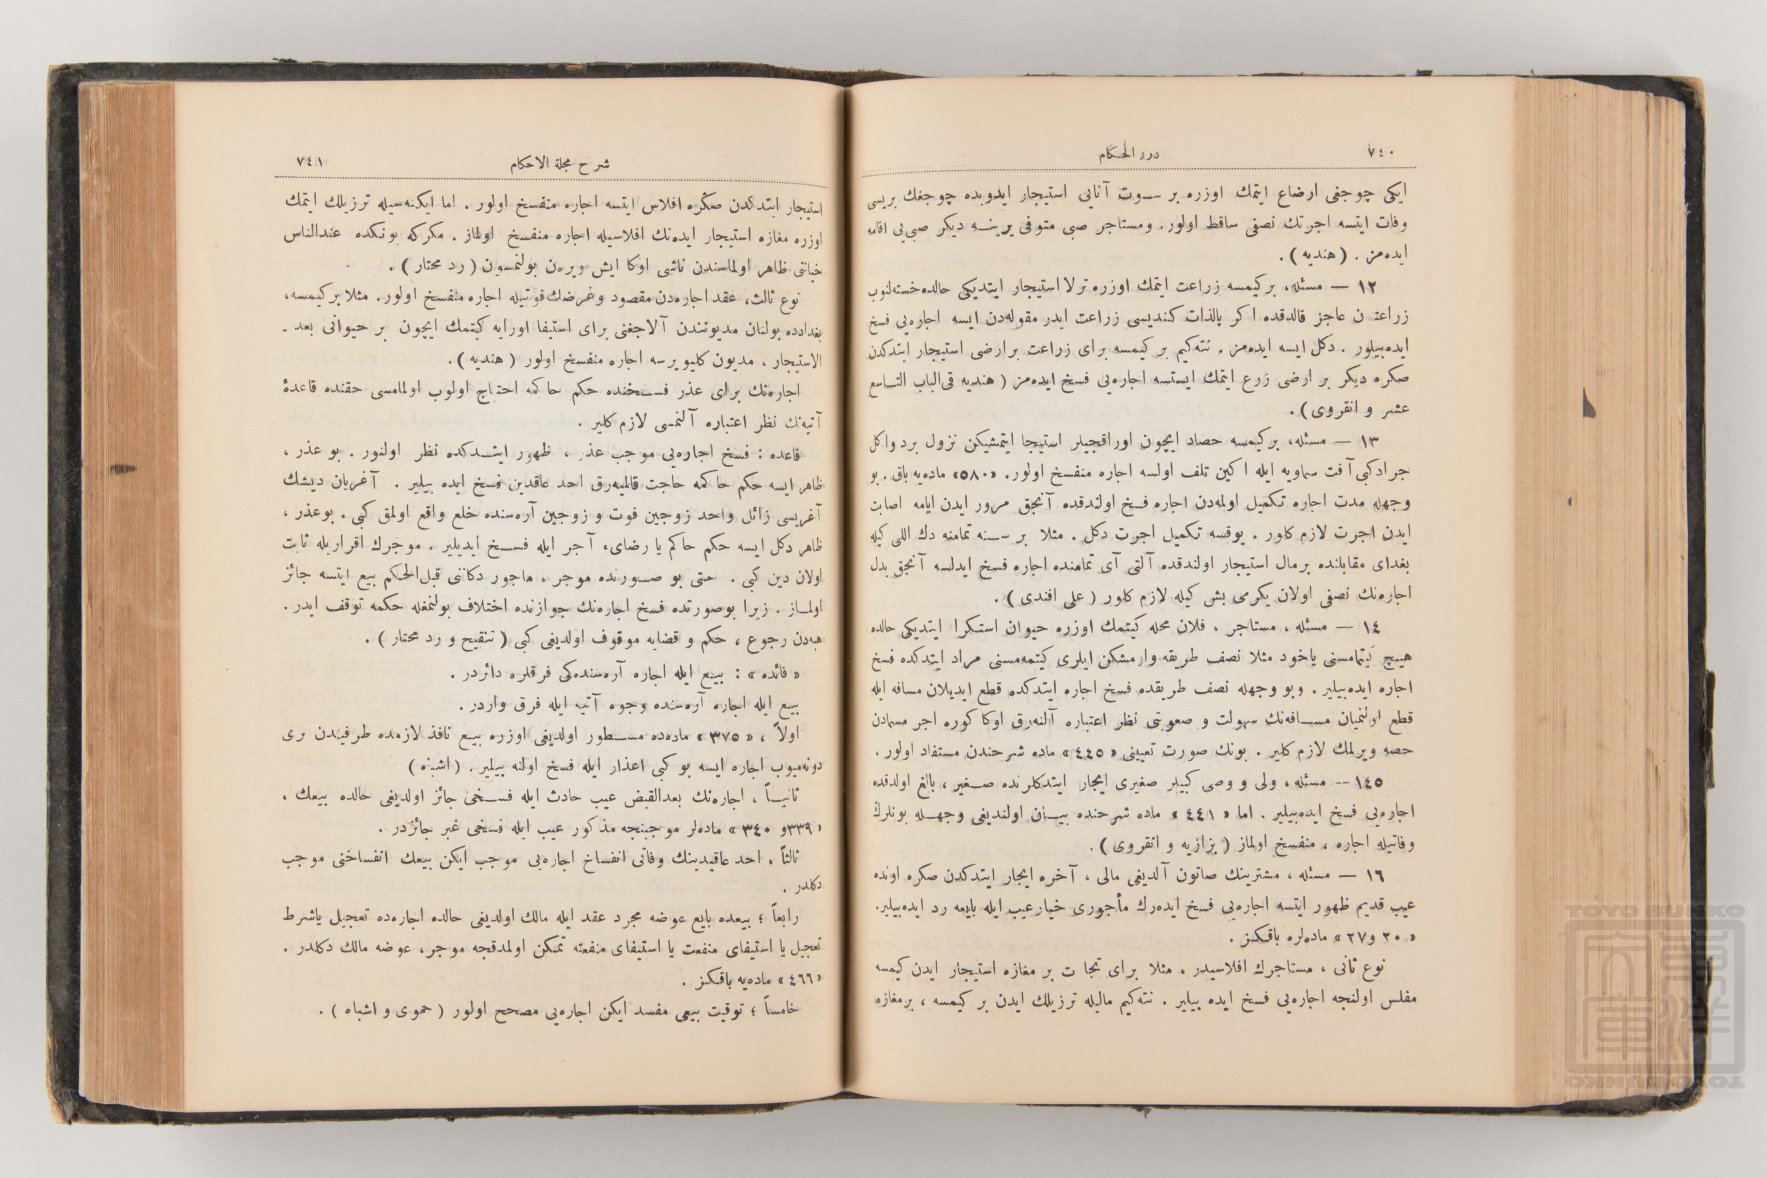 ٧٤٠
درر الحكام
ايكى چوجغى ارضاع ايتمك اوزره بر سوت آنايى استيجار ايدوبده چوجغك بريسى
وفات ايتسه اجرتك نصفى ساقط اولور. ومستاجر صبى متوفى يرينه ديكر صبى‌يى اقامه
ايده‌مز . (هنديه) .
١٢ — مسئله، بركيمسه زراعت ايتمك اوزره ترلا استيجار ايتديكى حالده خسته‌لنوب
زراعتدن عاجز قالدقده اكر بالذات كنديسى زراعت ايدر مقوله‌دن ايسه اجاره‌يى فسخ
ايده‌بيلور . دكل ايسه ايده‌مز . نته‌كيم بر كيمسه براى زراعت برارضى استيجار ايتدكدن
صكره ديكر بر ارضى زرع ايتمك ايستسه اجاره‌يى فسخ ايده‌مز ( هنديه فى‌الباب التاسع
عشر و انقروى) .
١٣ — مسئله، بركيمسه حصاد ايچون اوراقجيلر استيجا ايتمشيكن نزول برد واكل
جراد كبى آفت سماويه ايله اكين تلف اولسه اجاره منفسخ اولور. «٥٨٠» ماده‌يه باق . بو
وجهله مدت اجاره تكميل اولمه‌دن اجاره فسخ اولندقده آنجق مرور ايدن ايامه اصابت
ايدن اجرت لازم كلور . يوقسه تكميل اجرت دكل . مثلا بر سنه تمامنه دك اللى كيله
بغداى مقابلنده برمال استيجار اولندقده آلتى آى تمامنده اجاره فسخ ايدلسه آنجق بدل
اجاره‌نك نصفى اولان يكرمى بش كيله لازم كلور ( على افندى ) .
١٤ — مسئله ، مستاجر ، فلان محله كيتمك اوزره حيوان استكرا ايتديكى حالده
هيچ كيتمامسنى ياخود مثلا نصف طريقه وارمشكن ايلرى كيتمه‌مسنى مراد ايتدكده فسخ
اجاره ايده‌بيلير . وبو وجهله نصف طريقده فسخ اجاره ايتدكده قطع ايديلان مسافه ايله
قطع اولنميان مسافه‌نك سهولت و صعوبتى نظر اعتباره آلنه‌رق اوكا كوره اجر مسمادن
حصه ويرلمك لازم كلير . بونك صورت تعيينى «٤٤٥» ماده شرحندن مستفاد اولور .
١٤٥ -- مسئله ، ولى و وصى كبيلر صغيرى ايجار ايتدكلرنده صغير ، بالغ اولدقده
اجاره‌يى فسخ ايده‌بيلير . اما «٤٤١» ماده شرحنده بيان اولنديغى وجهله بونلرك
وفاتيله اجاره ، منفسخ اولماز ( بزازيه و انقروى ) .
١٦ — مسئله ، مشترينك صاتون آلديغى مالى ، آخره ايجار ايتدكدن صكره اونده
عيب قديم ظهور ايتسه اجاره‌يى فسخ ايده‌رك مأجورى خيارعيب ايله بايعه رد ايده‌بيلير.
«٢٠ و٢٧» ماده‌لره باقكز .
نوع ثانى ، مستاجرك افلاسيدر . مثلا براى تجا ت بر مغازه استيجار ايدن كيمسه
مفلس اولنجه اجاره‌يى فسخ ايده بيلير . نته‌كيم ماليله ترزيلك ايدن بر كيمسه ، برمغازه
شرح مجلة الاحكام
٧٤١
استيجار ايتدكدن صكره افلاس ايتسه اجاره منفسخ اولور . اما ايكنه‌سيله ترزيلك ايتمك
اوزره مغازه استيجار ايده‌نك افلاسيله اجاره منفسخ اولماز . مكركه بونكده عندالناس
خيانتى ظاهر اولماسندن ناشى اوكا ايش ويره‌ن بولنمسون ( رد محتار ) .
نوع ثالث، عقد اجاره‌دن مقصود وغرضك فوتيله اجاره منفسخ اولور. مثلا بركيمسه،
بغدادده بولنان مديوتندن آلاجغنى براى استيفا اورايه كيتمك ايچون بر حيوانى بعد .
الاستيجار ، مديون كليويرسه اجاره منفسخ اولور ( هنديه ) .
اجاره‌نك براى عذر فسخنده حكم حاكمه احتياج اولوب اولمامسى حقنده قاعدهٔ
آتيه‌نك نظر اعتباره آلنمسى لازم كلير .
قاعده : فسخ اجاره‌يى موجب عذر ، ظهور ايتدكده نظر اولنور . بو عذر ،
ظاهر ايسه حكم حاكمه حاجت قالميه‌رق احد عاقدين فسخ ايده بيلير . آغريان ديشك
آغريسى زائل واحد زوجين فوت و زوجين آره‌سنده خلع واقع اولمق كبى . بوعذر ،
ظاهر دكل ايسه حكم حاكم يا رضاىء آجر ايله فسخ ايديلير . موجرك اقراريله ثابت
اولان دين كبى . حتى بو صورنده موجر ، ماجور دكاننى قبل‌الحكم بيع ايتسه جائز
اولماز . زيرا بوصورتده فسخ اجاره‌نك جوازنده اختلاف بولنمغله حكمه توقف ايدر .
هبه‌دن رجوع ، حكم و قضايه موقوف اولديغى كبى ( تنقيح و رد محتار ) .
« فائده » : بيع ايله اجاره آره‌سنده‌كى فرقلره دائردر .
بيع ايله اجاره آره‌سنده وجوه آتيه ايله فرق واردر .
اولاً ، «٣٧٥» ماده‌ده مسطور اولديغى اوزره بيع نافذ لازمده طرفيندن برى
دونه‌ميوب اجاره ايسه بو كبى اعذار ايله فسخ اولنه بيلير . (اشباه)
ثانياً ، اجاره‌نك بعدالقبض عيب حادث ايله فسخى جائز اولديغى حالده بيعك ،
«٣٣٩و ٣٤٠» ماده‌لر موجبنجه مذكور عيب ايله فسخى غير جائزدر .
ثالثاً ، احد عاقيدينك وفاتى انفساخ اجاره‌يى موجب ايكن بيعك انفساخنى موجب
دكلدر .
رابعاً ؛ بيعده بايع عوضه مجرد عقد ايله مالك اولديغى حالده اجاره‌ده تعجيل ياشرط
تعجيل يا استيفاى منفعت يا استيفاى منفعته تمكن اولمدقجه موجر، عوضه مالك دكلدر .
«٤٦٦» ماده‌يه باقكز .
خامساً ؛ توقيت بيعى مفسد ايكن اجاره‌يى مصحح اولور ( حموى و اشباه ) .
TOYO BUNKO